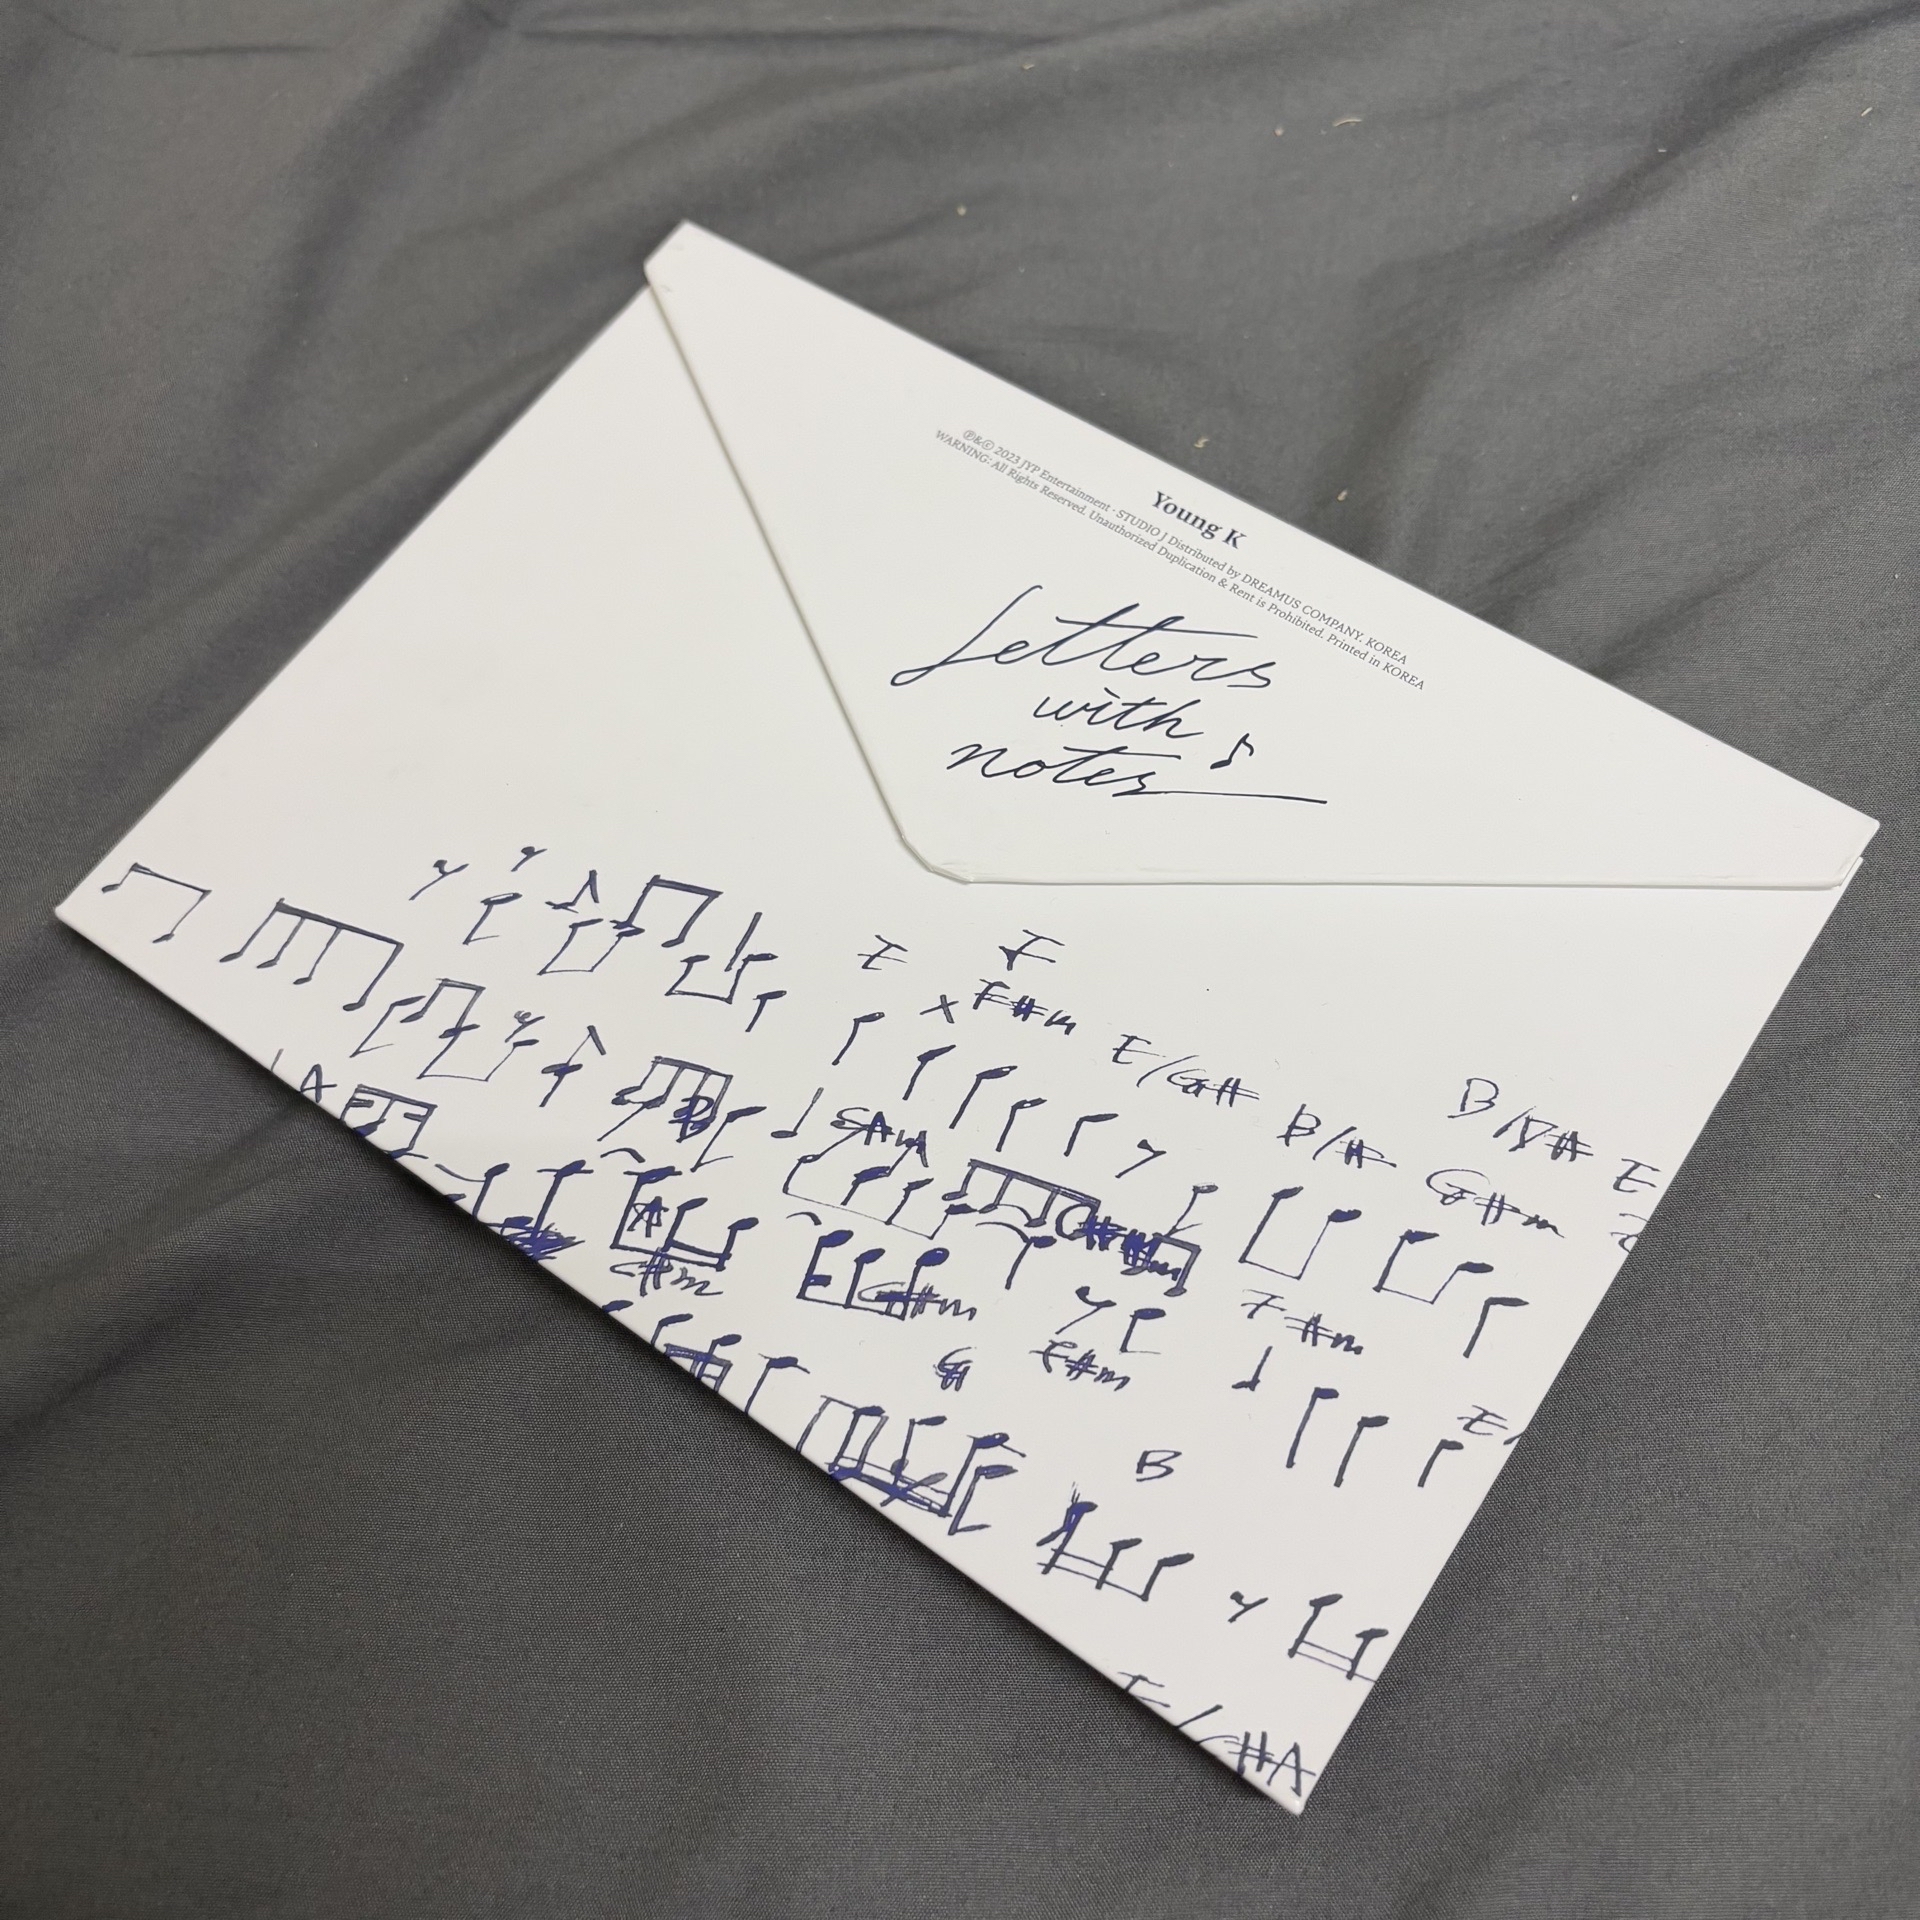 Young K
Ⓟ&Ⓒ 2023 JYP Entertainment · STUDIO J Distributed by DREAMUS COMPANY. KOREA
WARNING: All Rights Reserved. Unauthorized Duplication & Rent is Prohibited. Printed in KOREA
Letters
with
notes
E
F
F#m
E/G#
B/#
B/D#
E
G#m
A
C#m
G#m
F#m
G#
E#m
E
B
E/#A